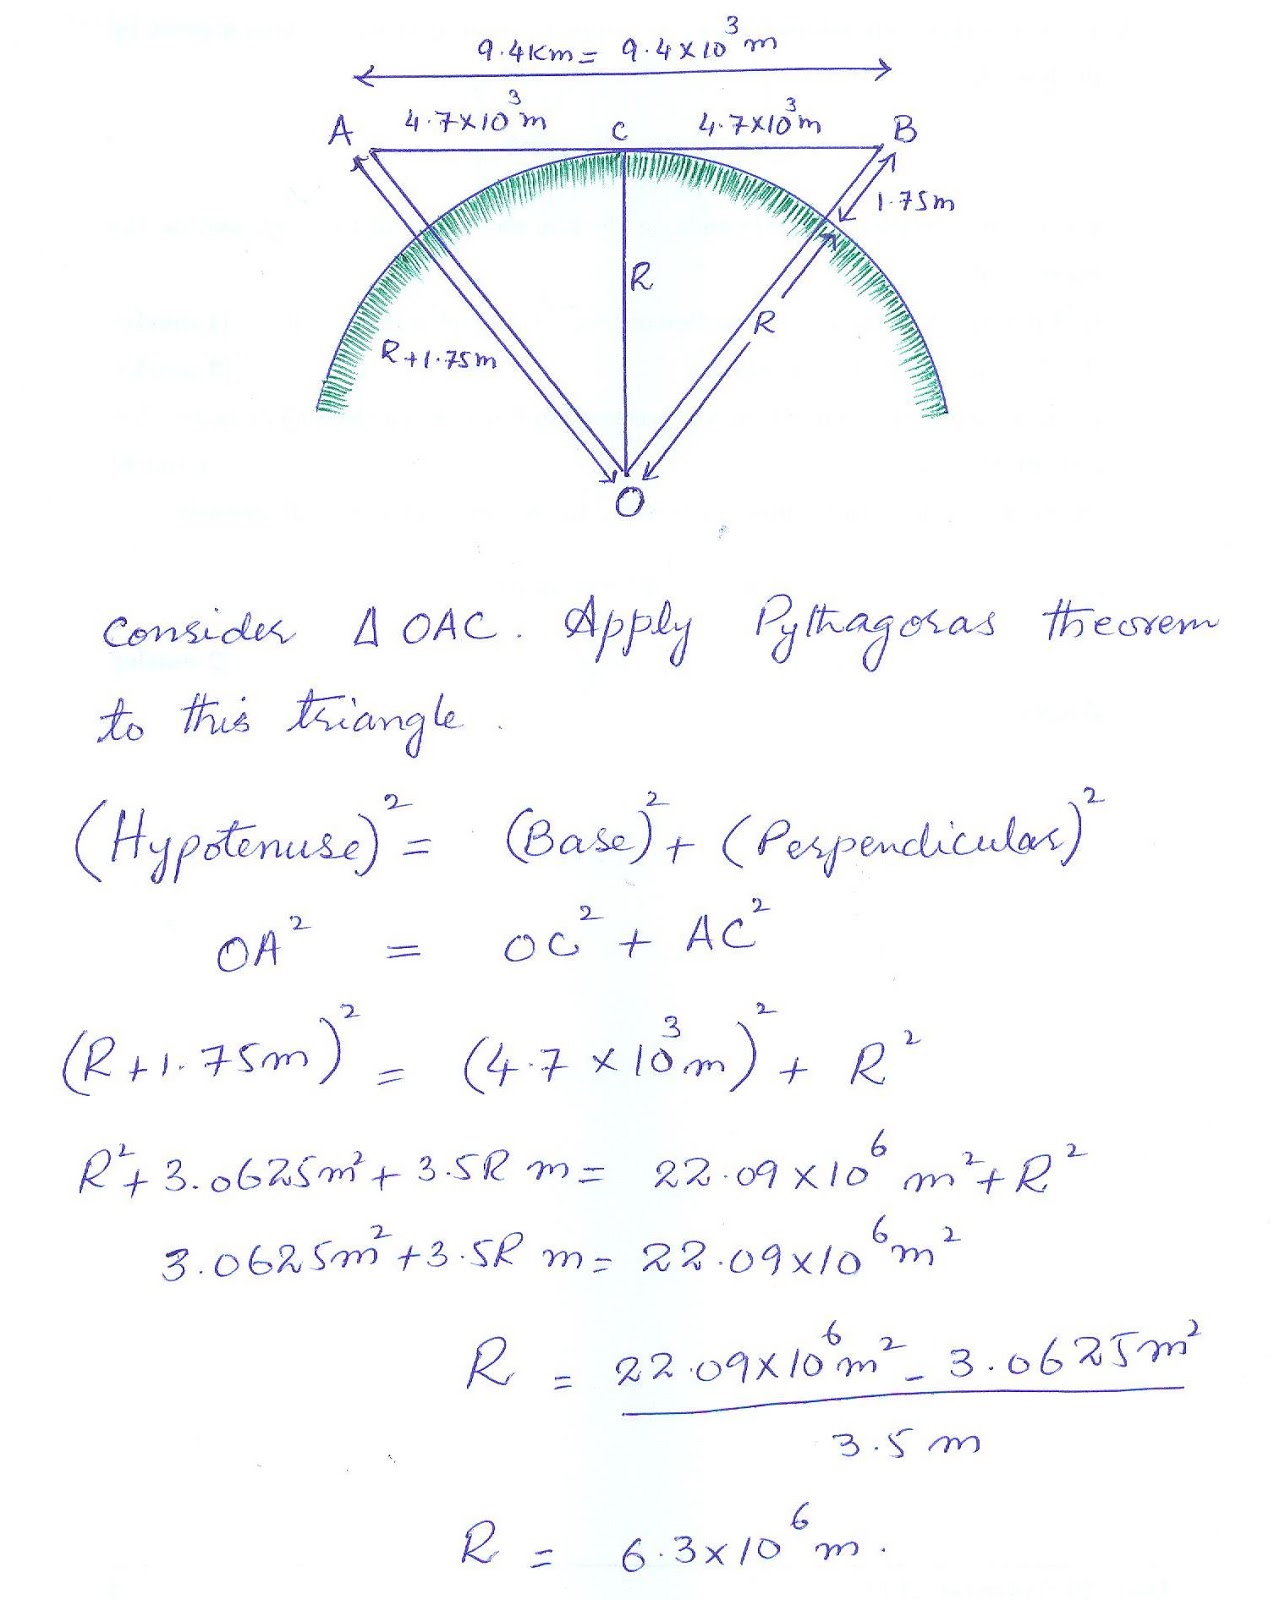 9.4Km = 9.4×10³m
A 4.7×10³m C 4.7×10³m B
1.75m
R
R
R+1.75m
O
Consider Δ OAC. Apply Pythagoras theorem
to this triangle.
(Hypotenuse)² = (Base)² + (Perpendicular)²
OA² = OC² + AC²
(R+1.75m)² = (4.7 × 10³m)² + R²
R²+3.0625m²+3.5R m = 22.09×10⁶ m²+R²
3.0625m²+3.5R m = 22.09×10⁶m²
R = 22.09×10⁶m² - 3.0625m²
3.5 m
R = 6.3×10⁶m.